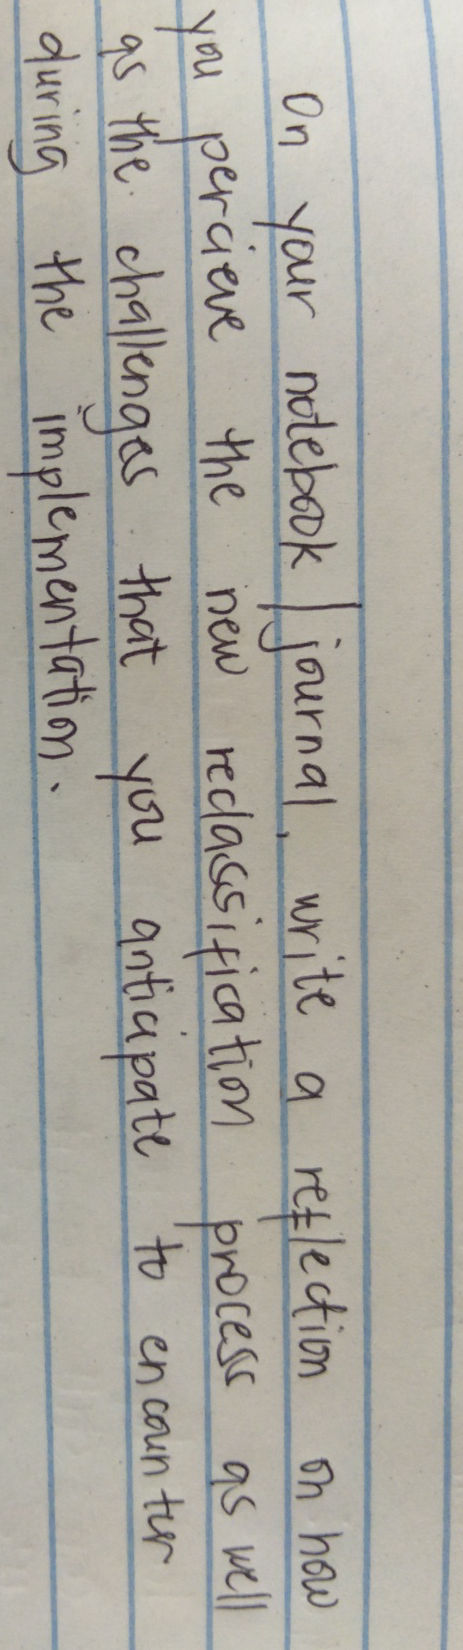 On your notebook / journal, write a reflection on how
you percieve the new reclassification process as well
as the challenges that you anticipate to encounter
during the implementation.